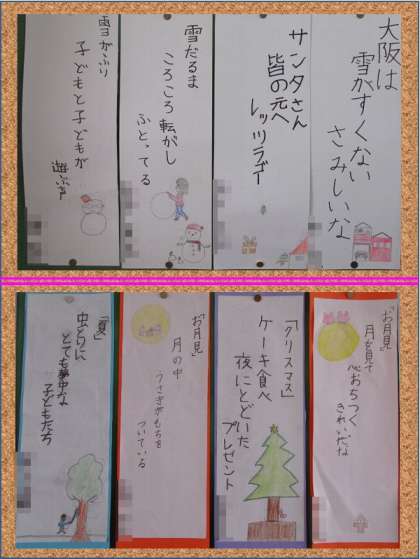 大阪は
雪がすくない
さみしいな
サンタさん
皆の元へ
レッツラゴー
雪だるま
ころころ転がし
ふとってる
雪がふり
子どもと子どもが
遊ぶ声
「お月見」
月を見て
心おちつく
きれいだな
「クリスマス」
ケーキ食べ
夜にとどいた
プレゼント
「お月見」
月の中
うさぎがもちを
ついている
「夏」
虫とりに
とても夢中な
子どもたち